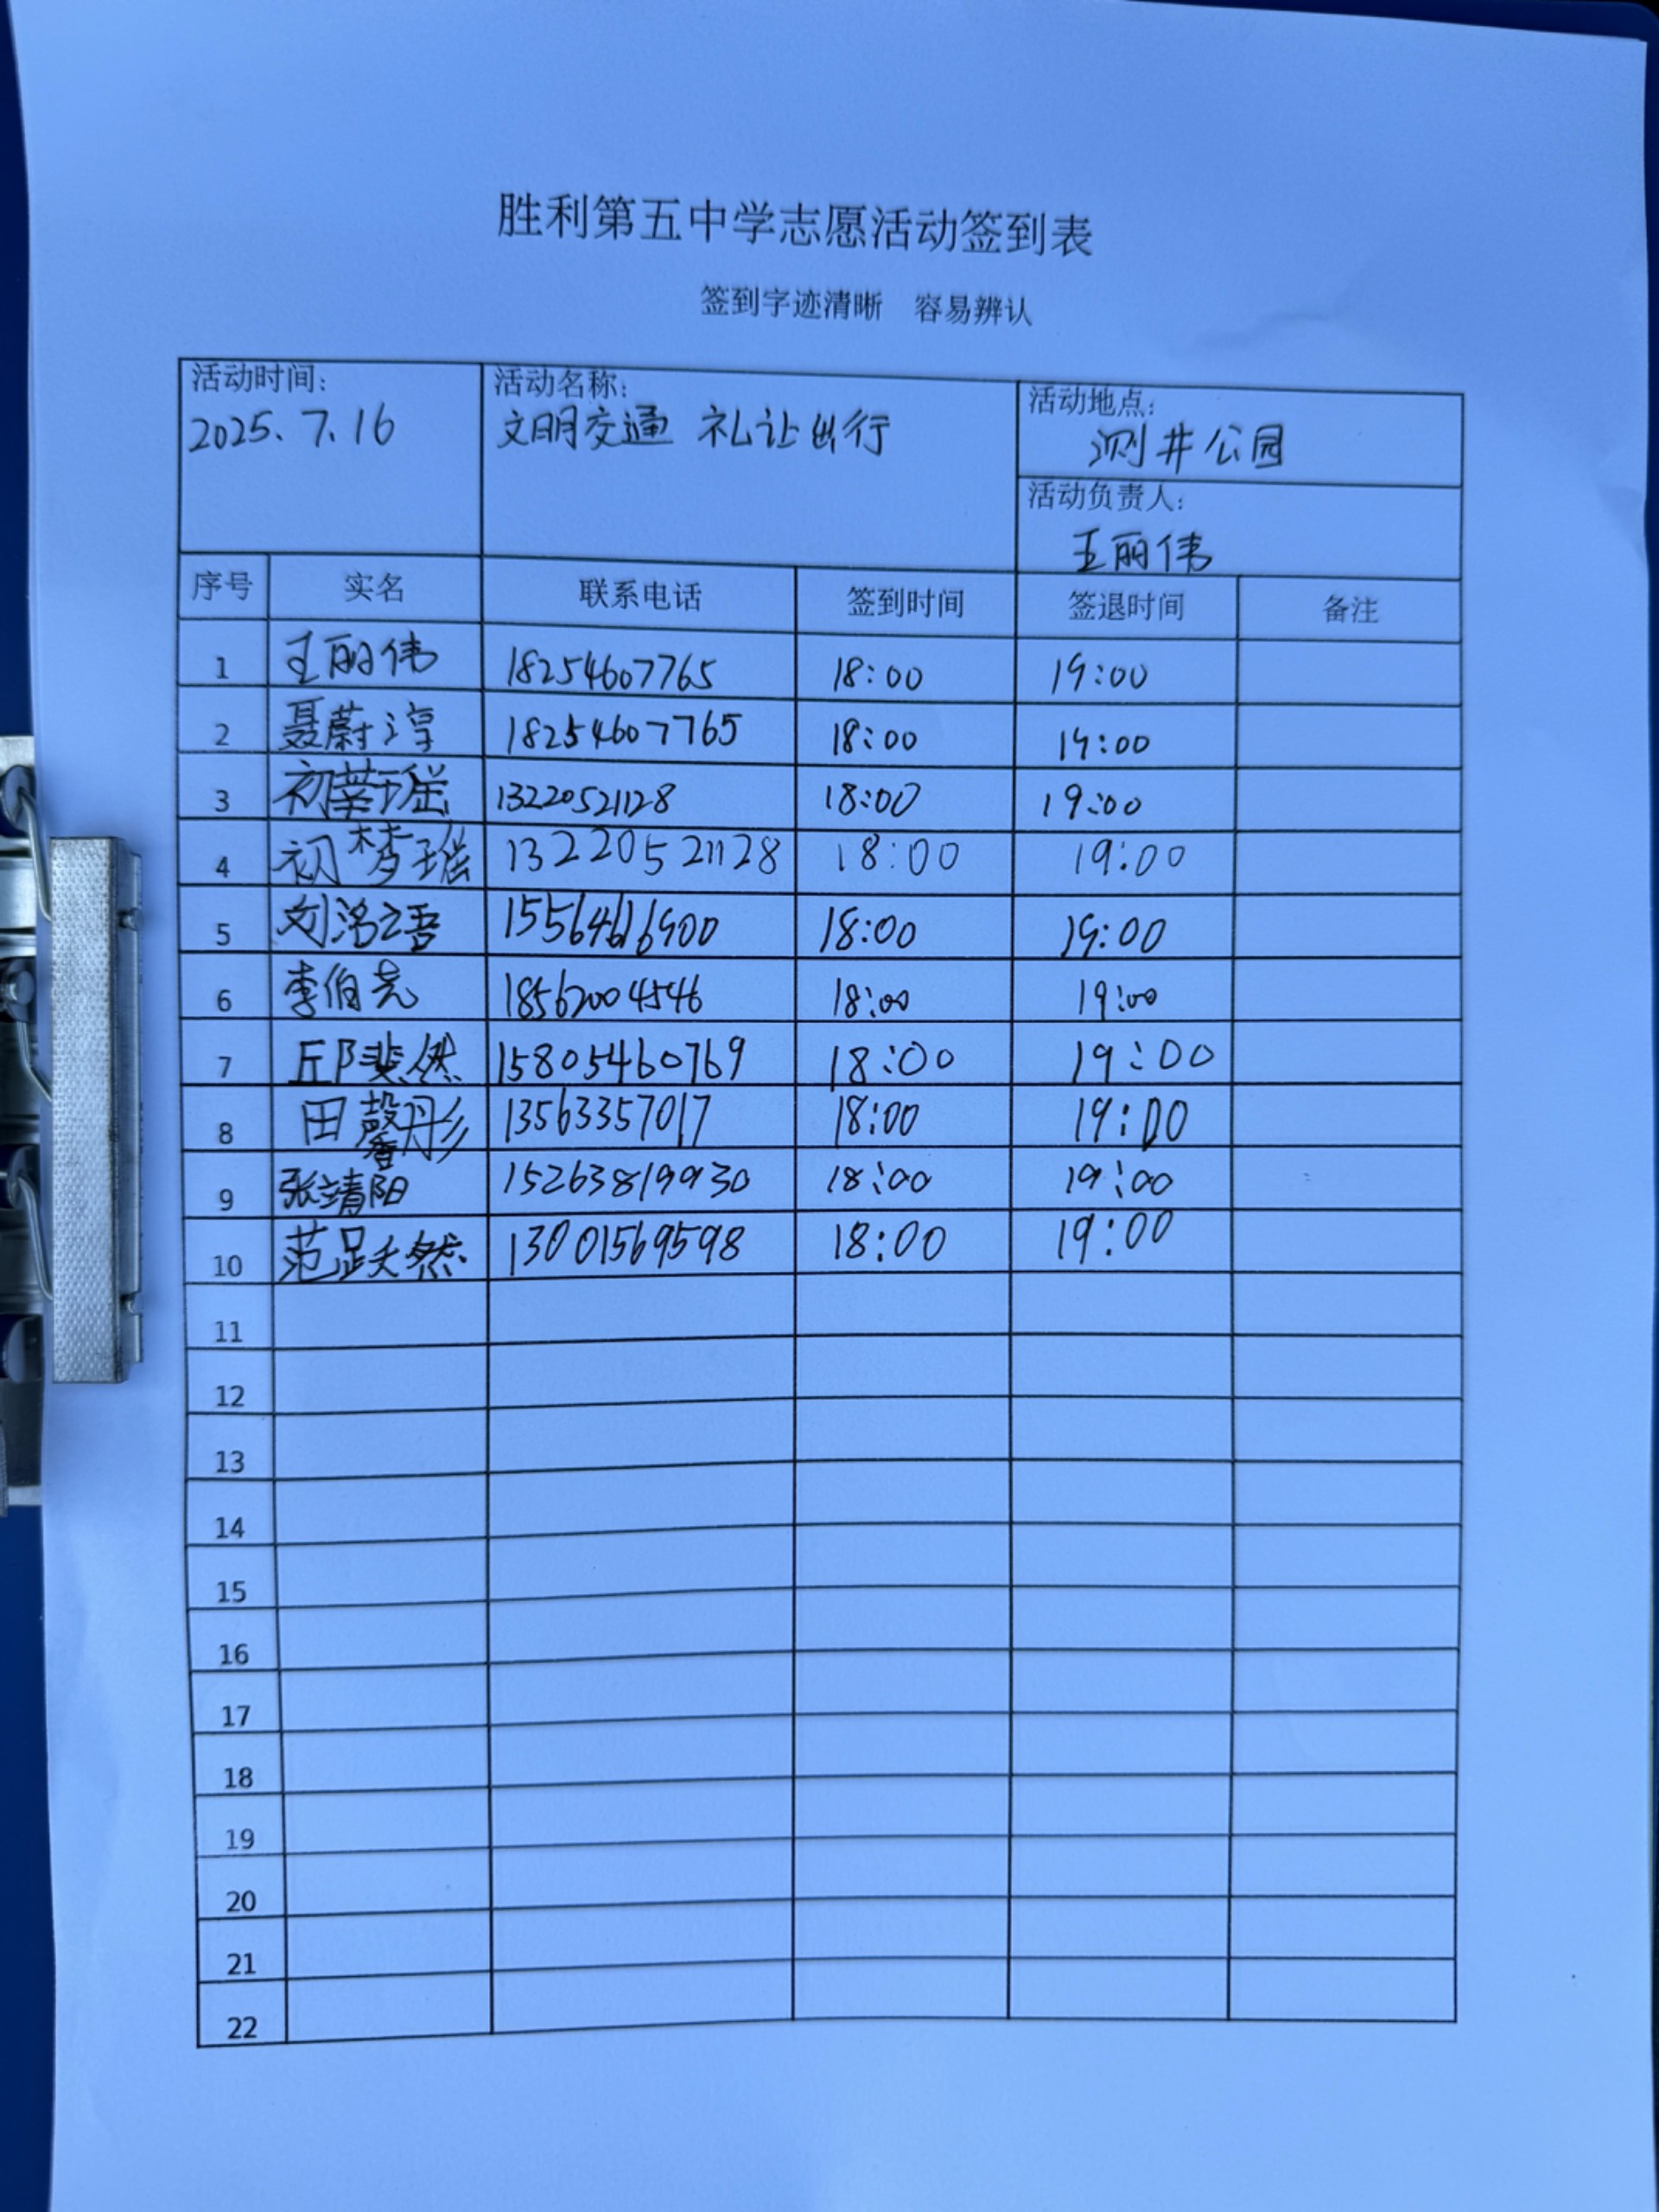 胜利第五中学志愿活动签到表
签到字迹清晰 容易辨认
活动时间: 活动名称: 活动地点:
2025.7.16 文明交通 礼让出行 测井公园
活动负责人:
王丽伟
序号 实名 联系电话 签到时间 签退时间 备注
1 王丽伟 18254607765 18:00 19:00
2 聂蔚淳 18254607765 18:00 19:00
3 初 13220521128 18:00 19:00
4 初梦瑶 13220521128 18:00 19:00
5 刘洺吾 18:00 19:00
6 李伯尧 18562004546 18:00 19:00
7 邱斐然 15805460769 18:00 19:00
8 田馨彤 13563357017 18:00 19:00
9 张靖阳 15263819930 18:00 19:00
10 范跃然 13001569598 18:00 19:00
11
12
13
14
15
16
17
18
19
20
21
22